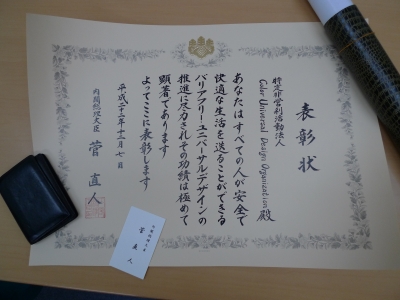 表彰状
特定非営利活動法人
Color Universal Design Organization 殿
あなたはすべての人が安全で
快適な生活を送ることができる
バリアフリー・ユニバーサルデザインの
推進に尽力されその功績は極めて
顕著であります
よってここに表彰します
平成二十二年十二月七日
内閣総理大臣 菅直人
菅直人